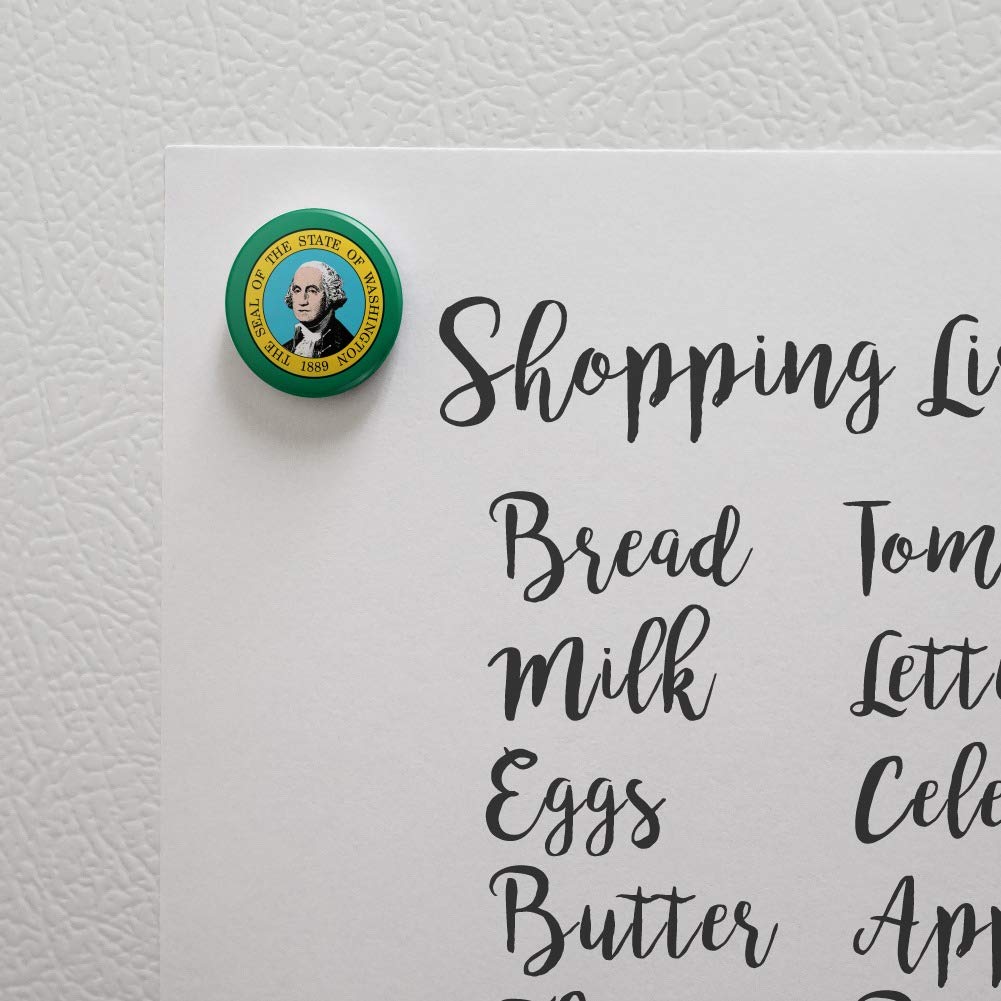 THE SEAL OF THE STATE OF WASHINGTON
1889
Shopping Li
Bread Tom
Milk Lett
Eggs Cele
Butter App